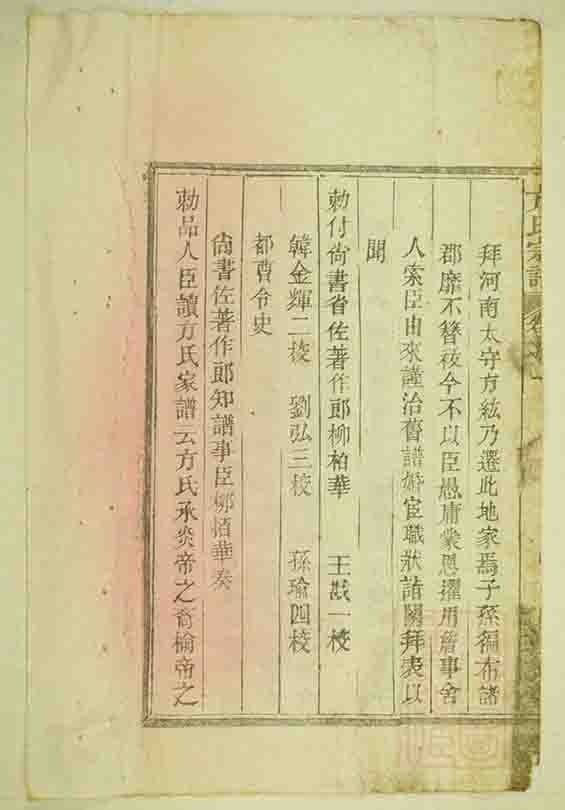 方氏宗譜
拜河南太守方紘乃遷此地家焉子孫徧布諸
郡靡不簪祓今不以臣愚庸蒙恩擢用詹事舍
人索臣由來謹治舊譜婚宦職狀詣闕拜表以
聞
勅付尙書省佐著作郎柳栢華 王戩一校
韓金輝二校 劉弘三校 孫瑜四校
都曹令史
尙書佐著作郎知譜事臣柳栢華奏
勅品人臣讀方氏家譜云方氏承炎帝之裔榆帝之